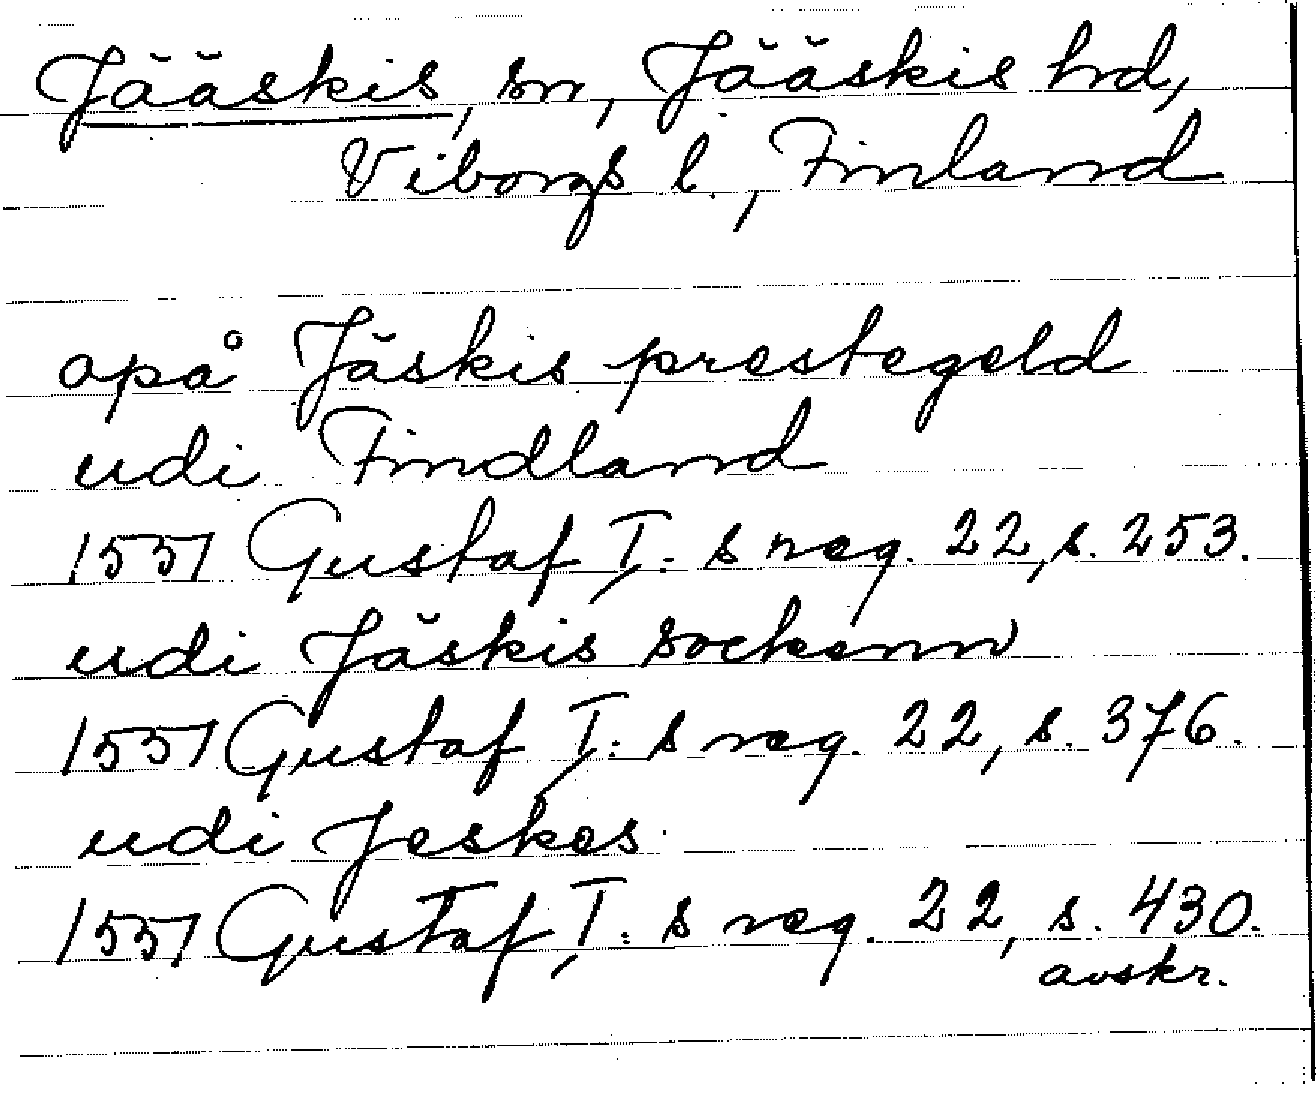 Jääskis, sn, Jääskis hrd,
Viborgs l., Finland
opå Jäskis prestegeld
udi Findland
1551 Gustaf I: s reg. 22, s. 253.
udi Jäskis sockenn
1551 Gustaf I: s reg. 22, s. 376.
udi Jeskes
1551 Gustaf I: s reg. 22, s. 430.
avskr.